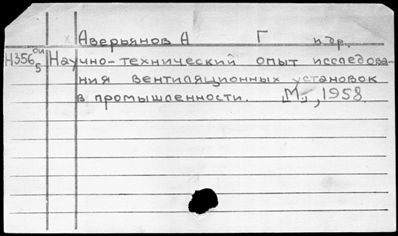 Аверьянов А Г и др.
Н356 Научно-технический опыт исследова-
5 ния вентиляционных установок
в промышленности. М., 1958.